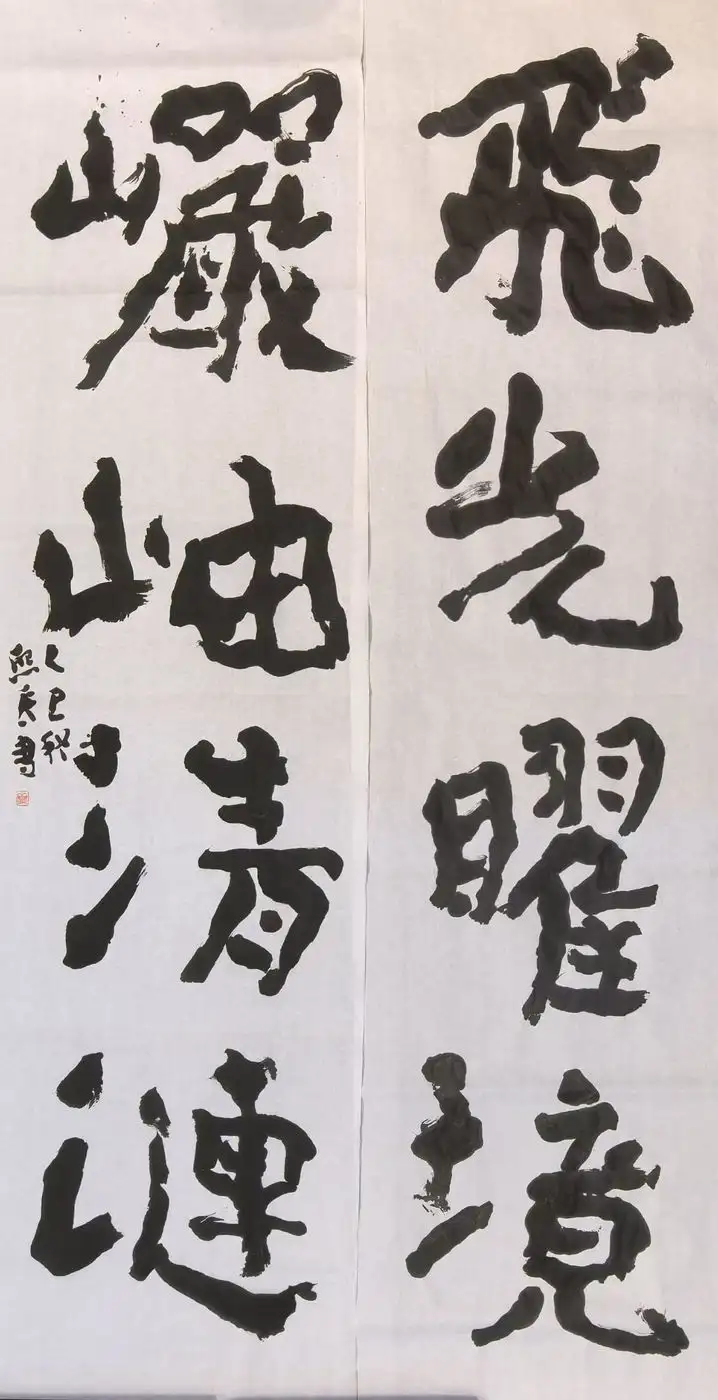 飛光曜境
巗岫清漣
乙巳秋
熙 書